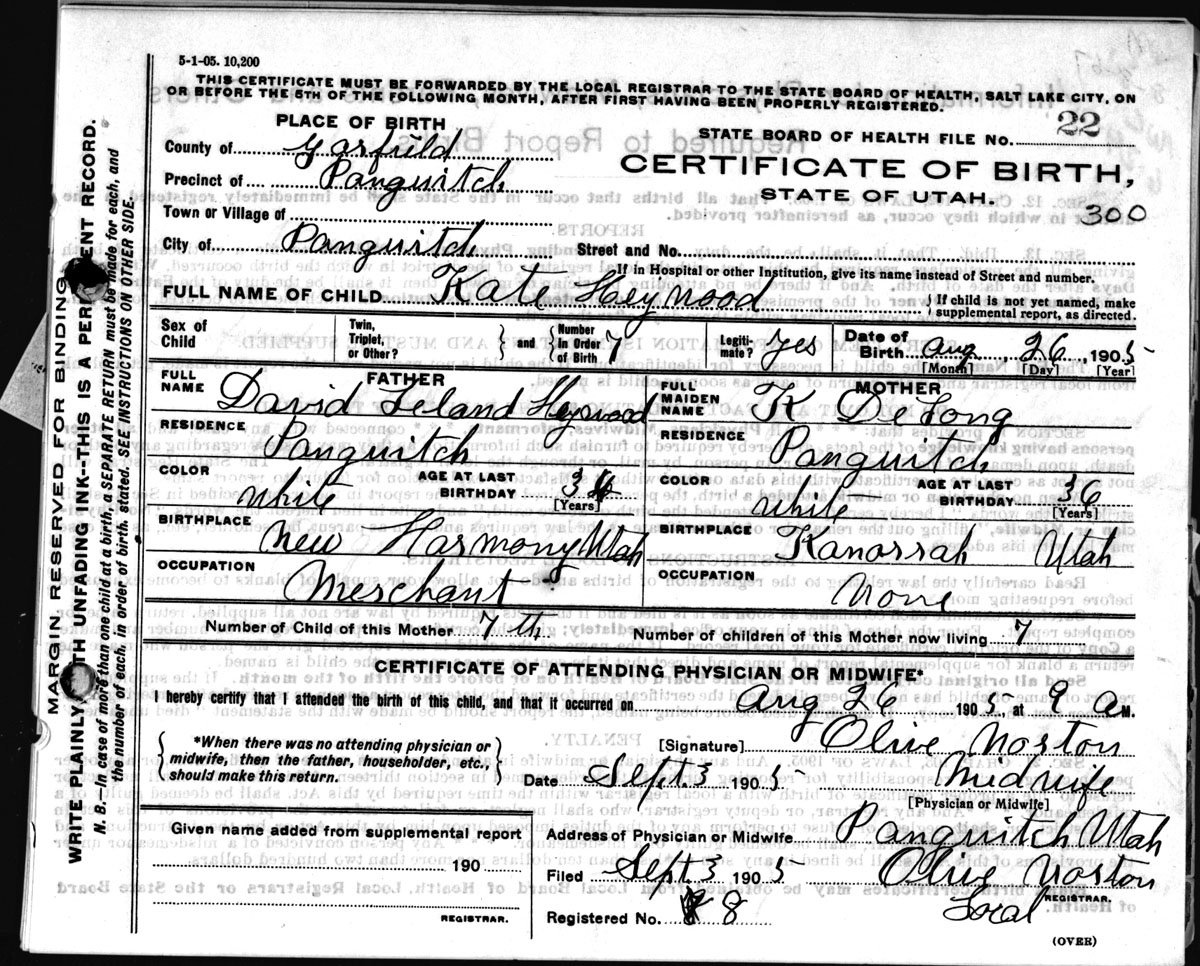 5-1-05. 10,200
THIS CERTIFICATE MUST BE FORWARDED BY THE LOCAL REGISTRAR TO THE STATE BOARD OF HEALTH, SALT LAKE CITY, ON
OR BEFORE THE 5TH OF THE FOLLOWING MONTH, AFTER FIRST HAVING BEEN PROPERLY REGISTERED.
PLACE OF BIRTH
STATE BOARD OF HEALTH FILE No. 22
County of Garfield
CERTIFICATE OF BIRTH,
Precinct of Panguitch
STATE OF UTAH.
300
Town or Village of
City of Panguitch Street and No.
If in Hospital or other Institution, give its name instead of Street and number.
FULL NAME OF CHILD Kate Heywood { If child is not yet named, make supplemental report, as directed.
Sex of Child
Twin, Triplet, or Other? } and { Number In Order of Birth 7
Legiti-mate? Yes
Date of Birth Aug, 26, 1905
[Month] [Day] [Year]
FATHER
FULL NAME David Leland Heywood
RESIDENCE Panguitch
COLOR White AGE AT LAST BIRTHDAY 36 [Years]
BIRTHPLACE New Harmony Utah
OCCUPATION Merchant
MOTHER
FULL MAIDEN NAME K DeLong
RESIDENCE Panguitch
COLOR White AGE AT LAST BIRTHDAY 36 [Years]
BIRTHPLACE Kanorrah Utah
OCCUPATION None
Number of Child of this Mother 7th Number of children of this Mother now living 7
CERTIFICATE OF ATTENDING PHYSICIAN OR MIDWIFE*
I hereby certify that I attended the birth of this child, and that it occurred on Aug 26 1905, at 9 A M.
{ *When there was no attending physician or midwife, then the father, householder, etc., should make this return. }
[Signature] Olive Norton
Date Sept 3 1905 Midwife
[Physician or Midwife]
Given name added from supplemental report
190
REGISTRAR.
Address of Physician or Midwife Panguitch Utah
Filed Sept 3 1905 Olive Norton
Local REGISTRAR.
Registered No. 8
(OVER)
MARGIN RESERVED FOR BINDING
WRITE PLAINLY WITH UNFADING INK--THIS IS A PERMANENT RECORD.
N. B.—In case of more than one child at a birth, a SEPARATE RETURN must be made for each, and
the number of each, in order of birth, stated. SEE INSTRUCTIONS ON OTHER SIDE.